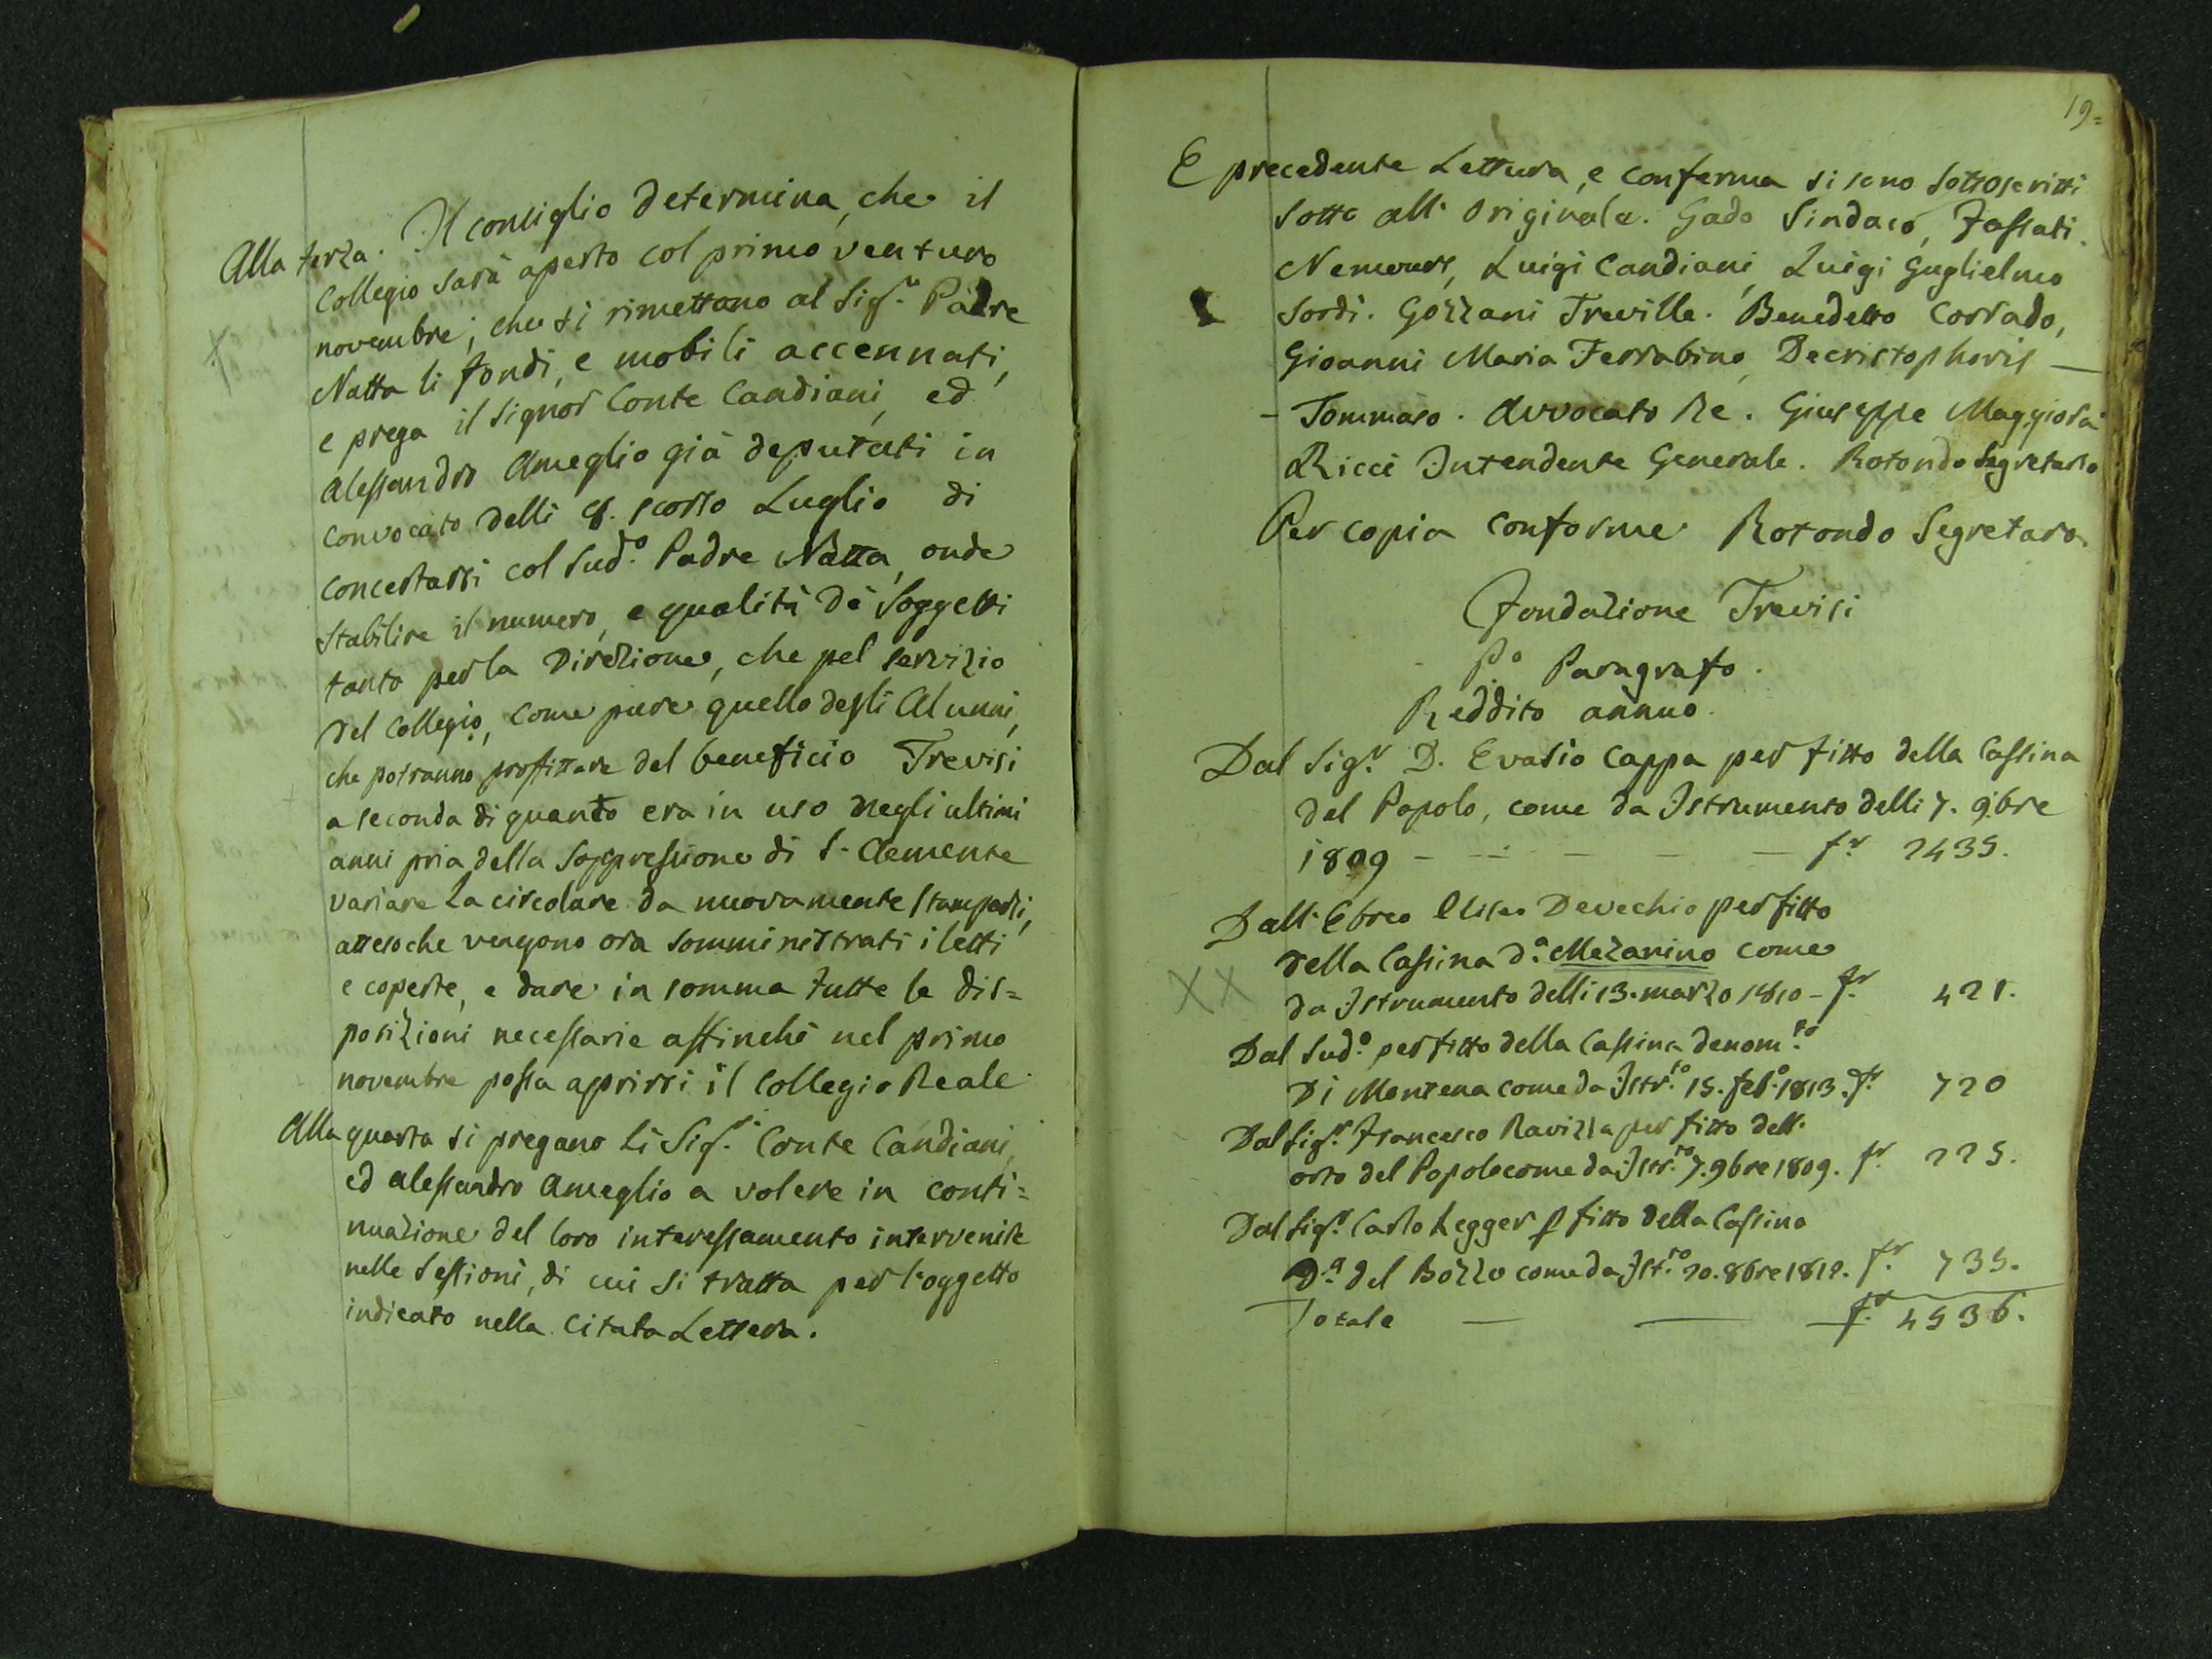 Alla terza. Il consiglio determina, che il
Collegio sarà aperto col primo venturo
novembre; che si rimettano al Sig.r Padre
Natta li fondi, e mobili accennati,
e prega il Signor Conte Candiani, ed
Alessandro Ameglio già deputati in
convocato delli scorso Luglio di
concertarsi col Sud.o Padre Natta, onde
stabilire il numero, e qualità de Soggetti
tanto per la Direzione, che pel servizio
del Collegio, come pure quello degli Alunni,
che potranno profittare del beneficio Trevisi
a seconda di quanto era in uso negli ultimi
anni pria della Soppressione di S. Clemente
variare la circolare da nuovamente stamparsi,
attesoche vengono ora somministrati i letti
e coperte, e dare in somma tutte le dis=
posizioni necessarie affinchè nel primo
novembre possa aprirsi il Collegio Reale.
Alla quarta si pregano li Sig.i Conte Candiani,
ed Alessandro Ameglio a volere in conti=
nuazione del loro interessamento intervenire
nelle Sessioni, di cui si tratta per l'oggetto
indicato nella Citata Lettera.
19=
E precedente Lettura, e conferma si sono Sottoscritti
sotto all'Originale. Gado Sindaco, Fassati.
Nemours, Luigi Candiani, Luigi Guglielmo
Sordi. Gozzani Treville. Benedetto Corrado,
Gioanni Maria Ferrabino, Decristophoris —
- Tommaso. Avvocato Re. Giuseppe Maggiora
Ricci Intendente Generale. Rotondo Segretaro
Per copia conforme Rotondo Segretaro.
Fondazione Trevisi
P.o Paragrafo.
Reddito annuo.
Dal Sig.r D. Evasio Cappa per fitto della Cassina
del Popolo, come da Istrumento delli 7. 9bre
1809 - - - - - f.r 2435.
Dall'Ebreo Devechio per fitto
della Cassina d.a Mezanino come
XX da Istrumento delli 13. marzo 1810 - f.r 421.
Dal Sud.o per fitto della Cassina denom.ta
Di Montena come da Istr.to 15. feb.o 1813. f.r 720
Dal Sig.r Francesco Ravizza per fitto dell'
orto del Popolo come da Istr.to 7. 9bre 1809. f.r 225.
Dal Sig.r Carlo Legger p fitto della Cassina
D.a del Bozzo come da Ist.to 20. 8bre 1812. f.r 735.
Totale — — f.r 4536.